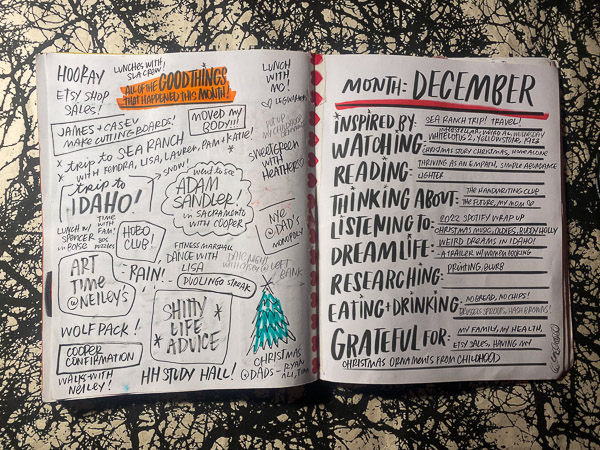 HOORAY
LUNCHES WITH
SLA CREW
ETSY SHOP
SALES!
ALL OF THE GOOD THINGS
THAT HAPPENED THIS MONTH!
LUNCH
WITH
MO!
♡ LEGWARMERS
JAMES + CASEY
MAKE CUTTING BOARDS!
MOVED MY
BODY!!!
PUT UP
* trip to SEA RANCH *
* WITH KENDRA, LISA, LAUREN, PAM + KATIE!
SWEETGREEN
WITH
HEATHER
SNOW!
trip to
IDAHO!
went to see
ADAM
SANDLER!
in SACRAMENTO
WITH COOPER
LUNCH W/
SPENCER
in BOISE
TIME
WITH
FAM!
PUZZLES
HOBO
CLUB!
NYE
@ DAD'S
MONOPOLY
FITNESS MARSHALL
DANCE WITH
LISA
DATE NIGHT
WITH COOP @ LEFT
BANK
ART
TIME
@ NEILEY'S
RAIN!
DUOLINGO STREAK
SHITTY
LIFE
ADVICE
WOLFPACK!
COOPER
CONFIRMATION
WALKS WITH
NEILEY!
HH STUDY HALL!
CHRISTMAS
@ DADS - RYAN
ALI, TIM
MONTH: DECEMBER
INSPIRED BY: SEA RANCH TRIP! TRAVEL!
WATCHING: INTERSTELLAR, WEIRD AL, WEDNESDAY
WHITE LOTUS 2, YELLOWSTONE, 1923
CHRISTMAS STORY CHRISTMAS, HOME ALONE
READING: THRIVING AS AN EMPATH, SIMPLE ABUNDANCE
LIGHTER
THINKING ABOUT: THE HANDWRITING CLUB
THE FUTURE, MY MOM
LISTENING TO: 2022 SPOTIFY WRAP UP
CHRISTMAS MUSIC, OLDIES, BUDDY HOLLY
DREAM LIFE: WEIRD DREAMS IN IDAHO!
- A TRAILER W/ WOMEN LOOKING
RESEARCHING: PRINTING, BLURB
EATING + DRINKING: NO BREAD, NO CHIPS!
BRUSSELS SPROUTS, HASH BROWNS!
GRATEFUL FOR: MY FAMILY, MY HEALTH,
ETSY SALES, HAVING MY
CHRISTMAS ORNAMENTS FROM CHILDHOOD